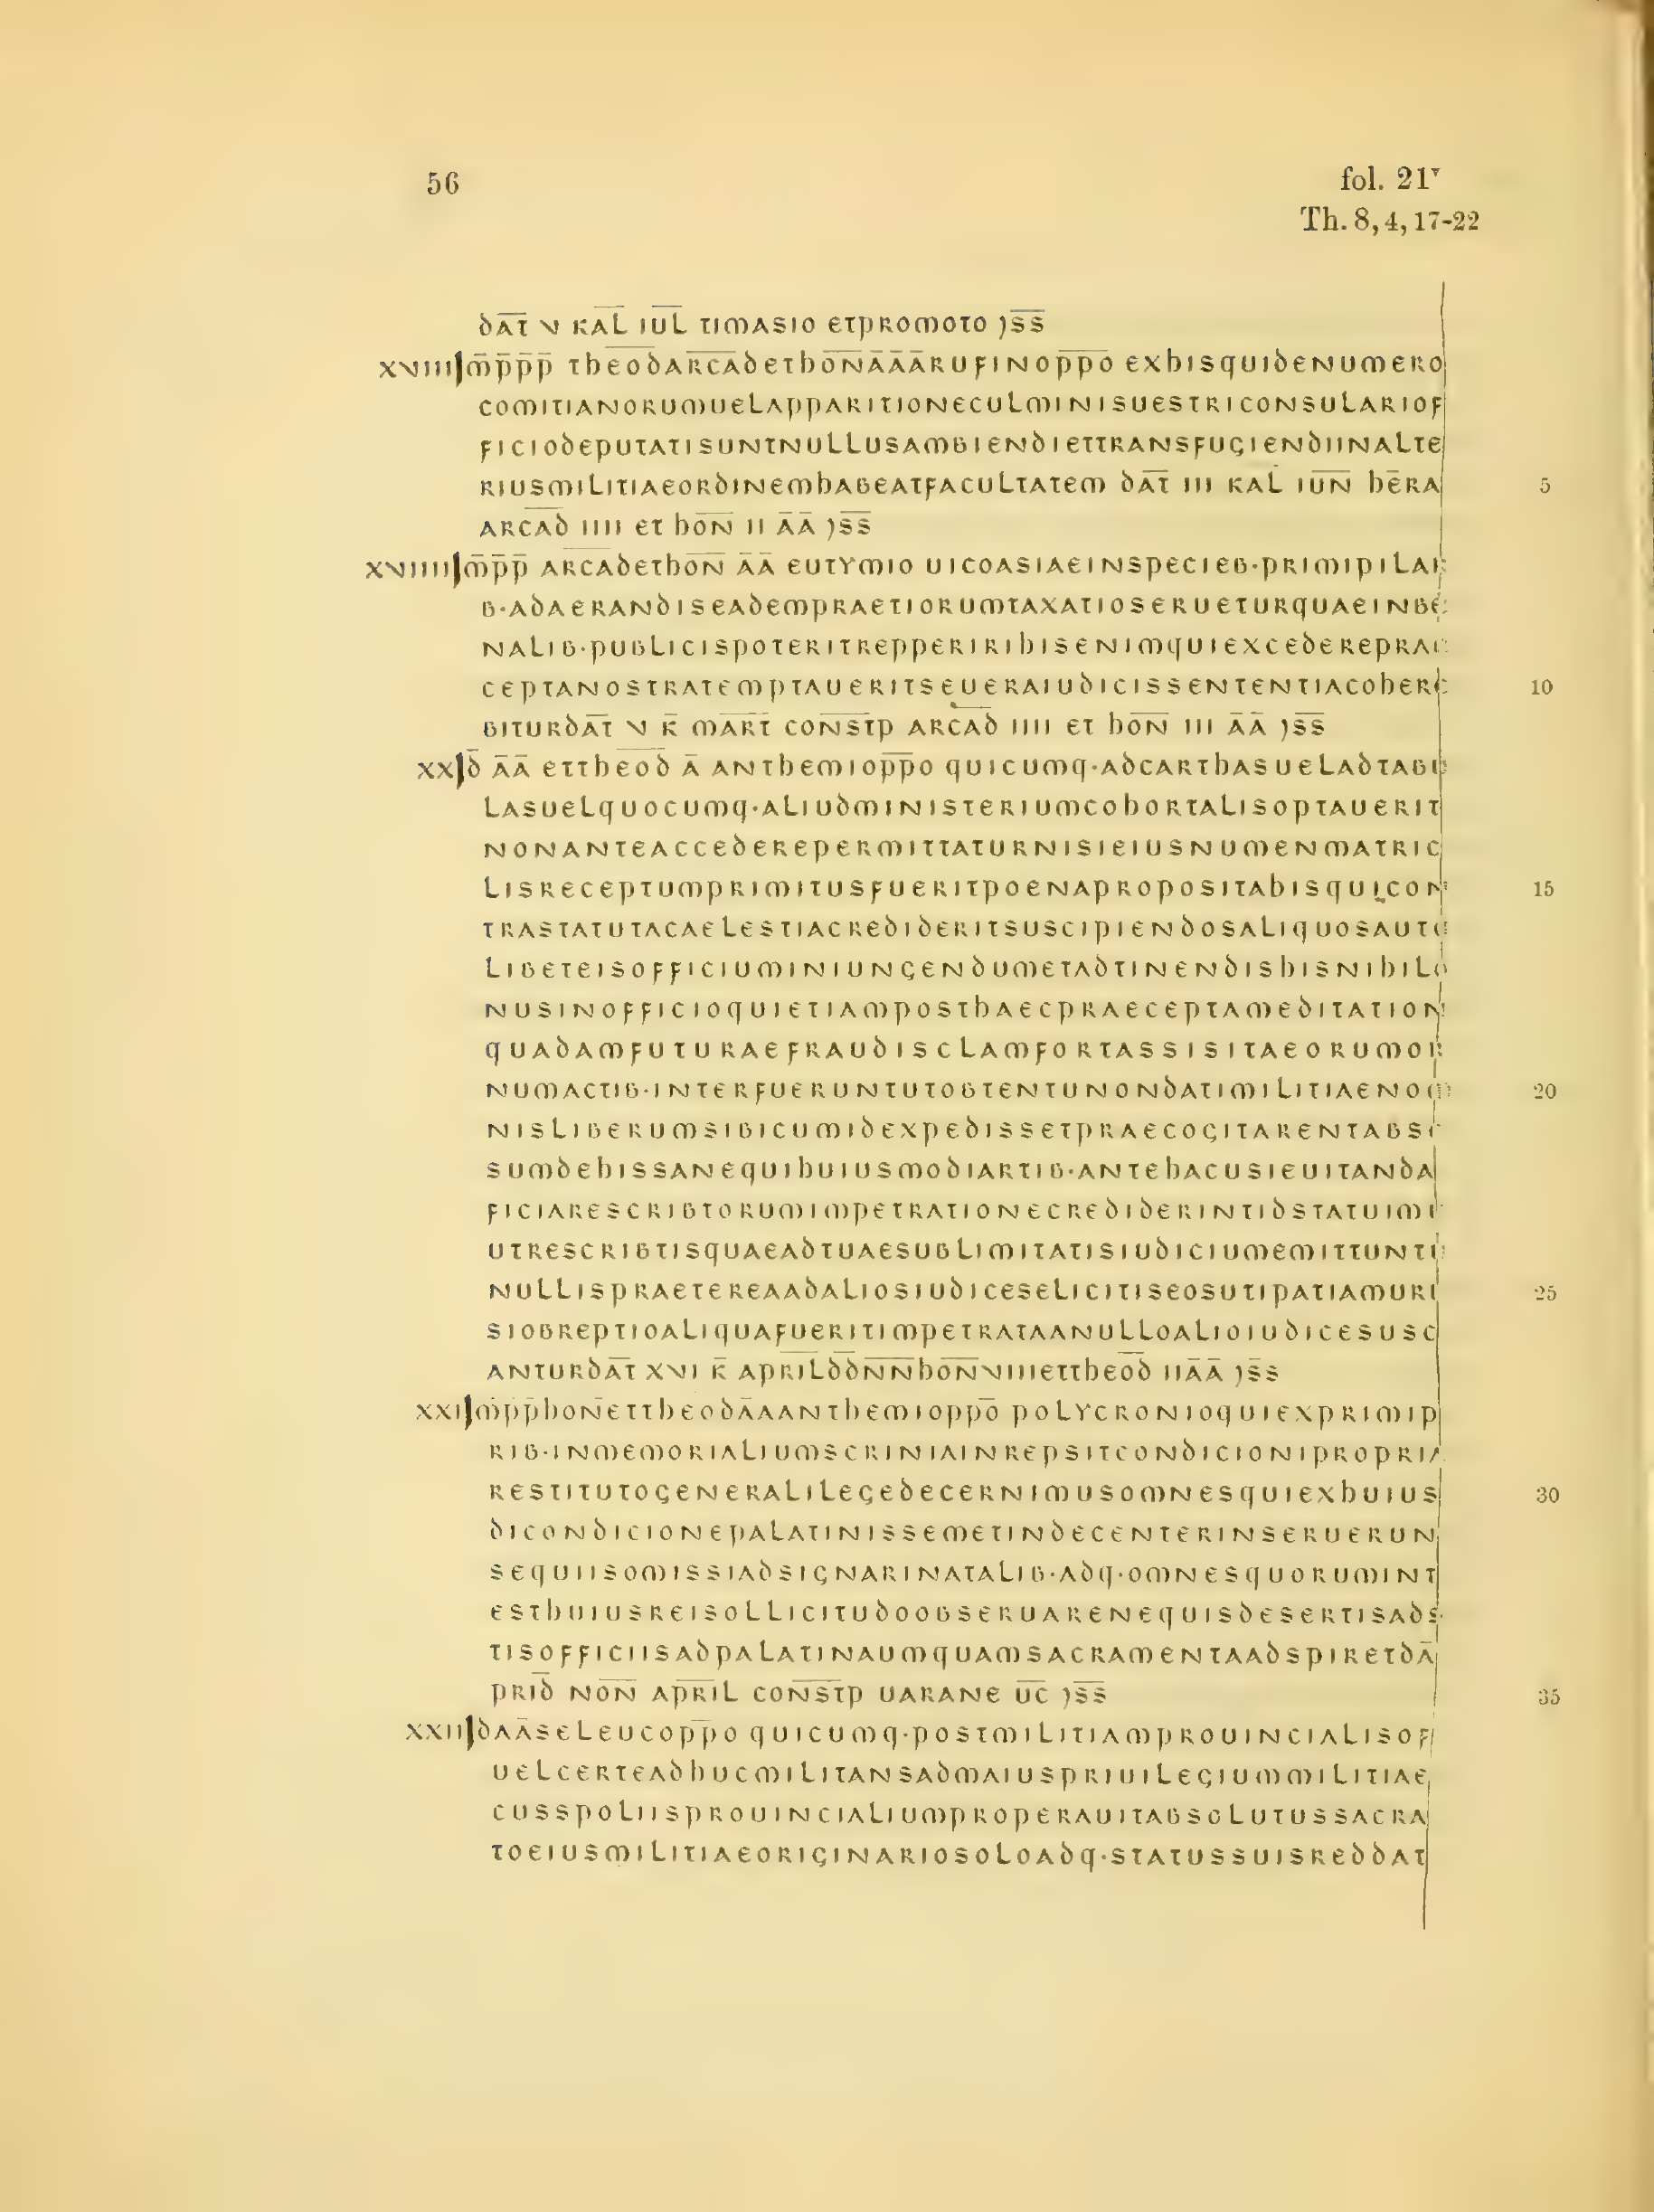 56
fol. 21ᵛ
Th. 8, 4, 17-22
DA̅T̅ V KA̅L̅ IU̅L̅ TIMASIO ETPROMOTO )S̅S̅
XVIIII M̅P̅P̅P̅ THE̅O̅D̅AR̅C̅A̅D̅ETHO̅N̅A̅A̅A̅RUFINOP̅P̅O̅ EXHISQUIDENUMERO
COMITIANORUMUELAPPARITIONECULMINISUESTRICONSULARIOF
FICIODEPUTATISUNTNULLUSAMBIENDIETTRANSFUGIENDIINALTE
RIUSMILITIAEORDINEMHABEATFACULTATEM DA̅T̅ III KA̅L̅ IU̅N̅ HE̅RA 5
ARC̅A̅D̅ IIII ET HO̅N̅ II A̅A̅ )S̅S̅
XVIIII M̅P̅P̅ AR̅C̅A̅D̅ETHO̅N̅ A̅A̅ EUTYMIO UICOASIAEINSPECIEB·PRIMIPILAR
B·ADAERANDISEADEMPRAETIORUMTAXATIOSERUETURQUAEINBE
NALIB·PUBLICISPOTERITREPPERIRIHISENIMQUIEXCEDEREPRAE
CEPTANOSTRATEMPTAUERITSEUERAIUDICISSENTENTIACOHERC 10
BITURDA̅T̅ V K̅ MA̅R̅T̅ CO̅N̅S̅T̅P ARC̅A̅D̅ IIII ET HO̅N̅ III A̅A̅ )S̅S̅
XX D̅ A̅A̅ ETTHE̅O̅D̅ A̅ ANTHEMIOP̅P̅O QUICUMQ·ADCARTHASUELADTABU
LASUELQUOCUMQ·ALIUDMINISTERIUMCOHORTALISOPTAUERIT
NONANTEACCEDEREPERMITTATURNISIEIUSNUMENMATRIC
LISRECEPTUMPRIMITUSFUERITPOENAPROPOSITAHISQUICON 15
TRASTATUTACAELESTIACREDIDERITSUSCIPIENDOSALIQUOSAUTC
LIBETEISOFFICIUMINIUNGENDUMETADTINENDISHISNIHILO
NUSINOFFICIOQUIETIAMPOSTHAECPRAECEPTAMEDITATION
QUADAMFUTURAEFRAUDISCLAMFORTASSISITAEORUMOR
NUMACTIB·INTERFUERUNTUTOBTENTUNONDATIMILITIAENOM 20
NISLIBERUMSIBICUMIDEXPEDISSETPRAECOGITARENTABS
SUMDEHISSANEQUIHUIUSMODIARTIB·ANTEHACUSIEUITANDA
FICIARESCRIBTORUMIMPETRATIONECREDIDERINTIDSTATUIM
UTRESCRIBTISQUAEADTUAESUBLIMITATISIUDICIUMEMITTUNTU
NULLISPRAETEREAADALIOSIUDICESELICITISEOSUTIPATIAMURI 25
SIOBREPTIOALIQUAFUERITIMPETRATAANULLOALIOIUDICESUSC
ANTURDA̅T̅ XVI K̅ APR̅I̅L̅D̅D̅N̅N̅HO̅N̅VIIIIETTHEO̅D̅ IIA̅A̅ )S̅S
XXI M̅P̅P̅HON̅ETTHEODA̅AANTHEMIOPPO̅ POLYCRONIOQUIEXPRIMIP
RIB·INMEMORIALIUMSCRINIAINREPSITCONDICIONIPROPRIA
RESTITUTOGENERALILEGEDECERNIMUSOMNESQUIEXHUIUS 30
DICONDICIONEPALATINISSEMETINDECENTERINSERUERUN
SEQUIISOMISSIADSIGNARINATALIB·ADQ·OMNESQUORUMINT
ESTHUIUSREISOLLICITUDOOBSERUARENEQUISDESERTISADS
TISOFFICIISADPALATINAUMQUAMSACRAMENTAADSPIRETDA̅
PRID̅ NO̅N̅ AP̅R̅I̅L CO̅N̅S̅T̅P UARANE U̅C̅ )S̅S̅ 35
XXII DAA̅SELEUCOP̅P̅O QUICUMQ·POSTMILITIAMPROUINCIALISOF
UELCERTEADHUCMILITANSADMAIUSPRIUILEGIUMMILITIAE
CUSSPOLIISPROUINCIALIUMPROPERAUITABSOLUTUSSACRA
TOEIUSMILITIAEORIGINARIOSOLOADQ·STATUSSUISREDDAT